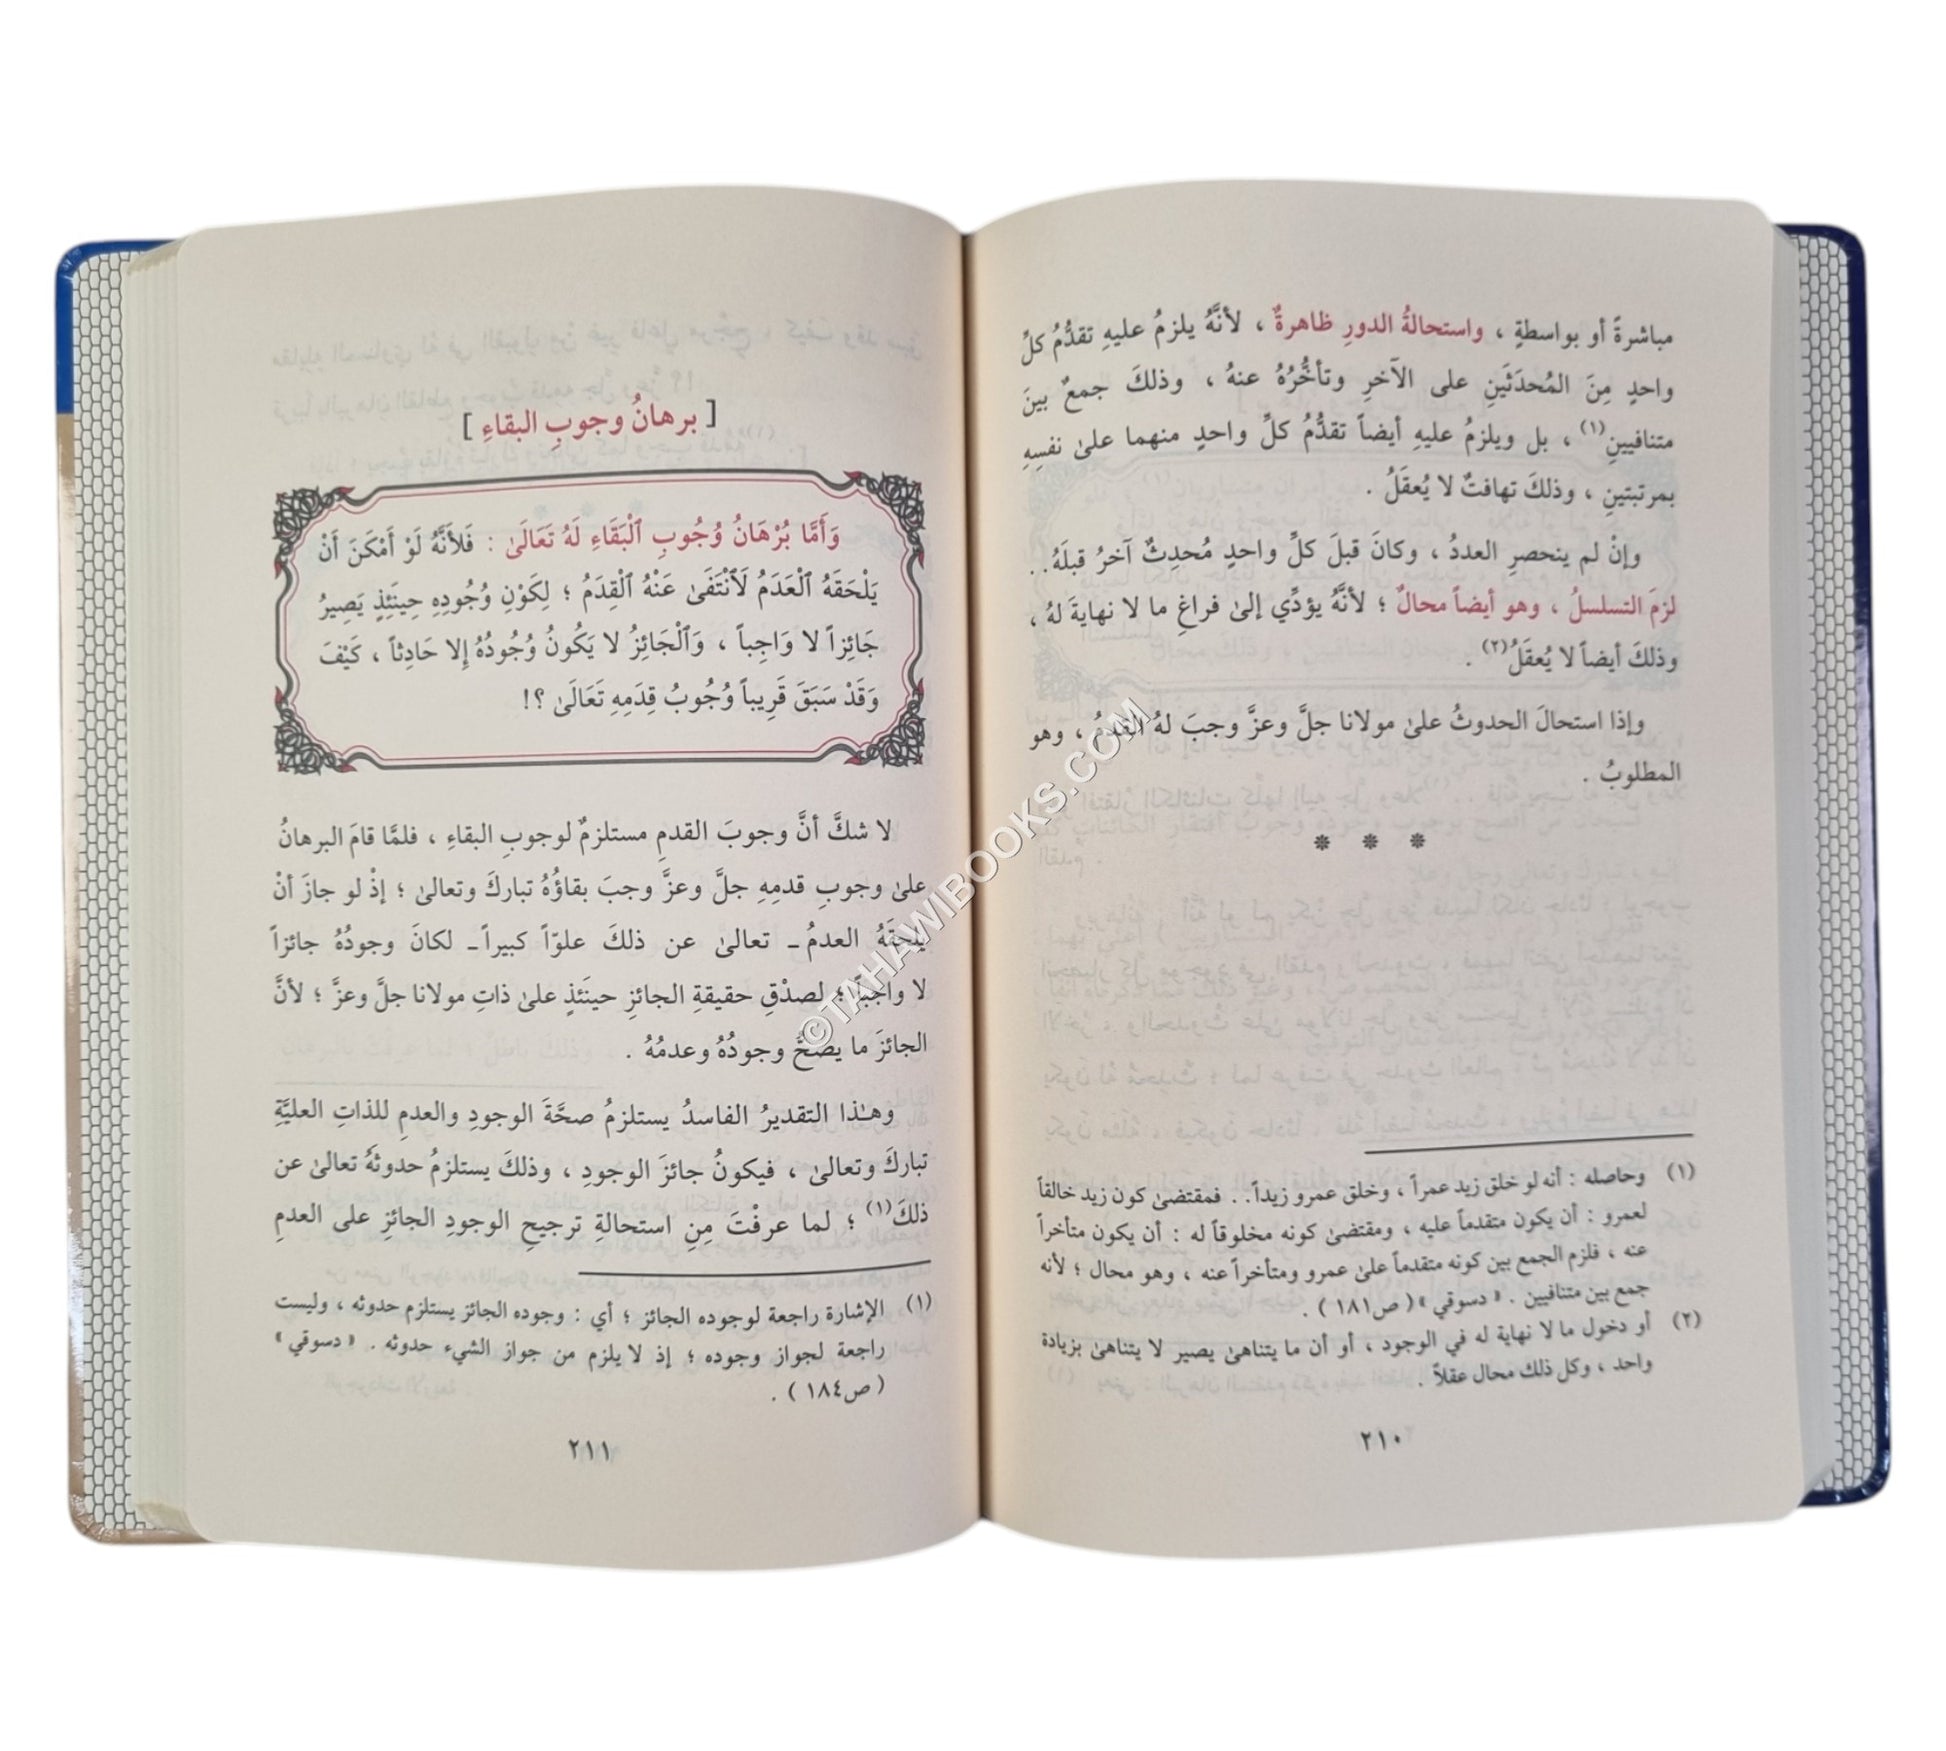 مباشرةً أو بواسطةٍ ، واستحالةُ الدورِ ظاهرةٌ ، لأنَّهُ يلزمُ عليهِ تقدُّمُ كلِّ
واحدٍ مِنَ المُحدَثَينِ على الآخرِ وتأخُّرُهُ عنهُ ، وذلكَ جمعٌ بينَ
متنافيينِ(١) ، بل ويلزمُ عليهِ أيضاً تقدُّمُ كلِّ واحدٍ منهما علىٰ نفسِهِ
بمرتبتينِ ، وذلكَ تهافتٌ لا يُعقَلُ .
وإنْ لم ينحصرِ العددُ ، وكانَ قبلَ كلِّ واحدٍ مُحدِثٌ آخرُ قبلَهُ . .
لزمَ التسلسلُ ، وهو أيضاً محالٌ ؛ لأنَّهُ يؤدِّي إلىٰ فراغِ ما لا نهايةَ لهُ ،
وذلكَ أيضاً لا يُعقَلُ(٢) .
وإذا استحالَ الحدوثُ علىٰ مولانا جلَّ وعزَّ وجبَ لهُ القدمُ ، وهو
المطلوبُ .
* * *
(١) وحاصله : أنه لو خلق زيد عمراً ، وخلق عمرو زيداً . . فمقتضىٰ كون زيد خالقاً
لعمرو : أن يكون متقدماً عليه ، ومقتضىٰ كونه مخلوقاً له : أن يكون متأخراً
عنه ، فلزم الجمع بين كونه متقدماً علىٰ عمرو ومتأخراً عنه ، وهو محال ؛ لأنه
جمع بين متنافيين . « دسوقي » ( ص١٨١ ) .
(٢) أو دخول ما لا نهاية له في الوجود ، أو أن ما يتناهىٰ يصير لا يتناهىٰ بزيادة
واحد ، وكل ذلك محال عقلاً .
٢١٠
[ برهانُ وجوبِ البقاءِ ]
وَأَمَّا بُرْهَانُ وُجُوبِ ٱلْبَقَاءِ لَهُ تَعَالَىٰ : فَلأَنَّهُ لَوْ أَمْكَنَ أَنْ
يَلْحَقَهُ ٱلْعَدَمُ لَٱنْتَفَىٰ عَنْهُ ٱلْقِدَمُ ؛ لِكَوْنِ وُجُودِهِ حِينَئِذٍ يَصِيرُ
جَائِزاً لا وَاجِباً ، وَٱلْجَائِزُ لا يَكُونُ وُجُودُهُ إِلا حَادِثاً ، كَيْفَ
وَقَدْ سَبَقَ قَرِيباً وُجُوبُ قِدَمِهِ تَعَالَىٰ ؟!
لا شكَّ أنَّ وجوبَ القدمِ مستلزمٌ لوجوبِ البقاءِ ، فلمَّا قامَ البرهانُ
علىٰ وجوبِ قدمِهِ جلَّ وعزَّ وجبَ بقاؤُهُ تباركَ وتعالىٰ ؛ إذْ لو جازَ أنْ
يلحقَهُ العدمُ ـ تعالىٰ عن ذلكَ علوّاً كبيراً ـ لكانَ وجودُهُ جائزاً
لا واجباً ؛ لصدْقِ حقيقةِ الجائزِ حينَئذٍ علىٰ ذاتِ مولانا جلَّ وعزَّ ؛ لأنَّ
الجائزَ ما يصحُّ وجودُهُ وعدمُهُ .
وهـٰذا التقديرُ الفاسدُ يستلزمُ صحَّةَ الوجودِ والعدمِ للذاتِ العليَّةِ
تباركَ وتعالىٰ ، فيكونُ جائزَ الوجودِ ، وذلكَ يستلزمُ حدوثَهُ تعالىٰ عن
ذلكَ(١) ؛ لما عرفْتَ مِنِ استحالةِ ترجيحِ الوجودِ الجائزِ على العدمِ
(١) الإشارة راجعة لوجوده الجائز ؛ أي : وجوده الجائز يستلزم حدوثه ، وليست
راجعة لجواز وجوده ؛ إذ لا يلزم من جواز الشيء حدوثه . « دسوقي »
( ص١٨٤ ) .
٢١١
©TAHAWIBOOKS.COM